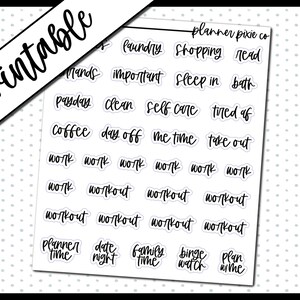 printable
planner pixie co
laundry shopping read
errands important sleep in bath
payday clean self care tired af
coffee day off me time take out
work work work work work work
work workout workout workout
workout workout workout workout
planner time date night family time binge watch plan w me